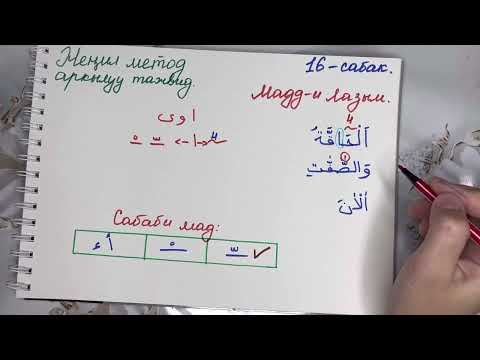 Жеңил метод
аркылуу тажвид.
16-сабак.
Мадд-и лазым.
اَلْحَاقَّةُ
وَالصّٰٓفّٰتِ
اٰلْاٰنَ
ا و ى
Сабаби мад:
أ ء